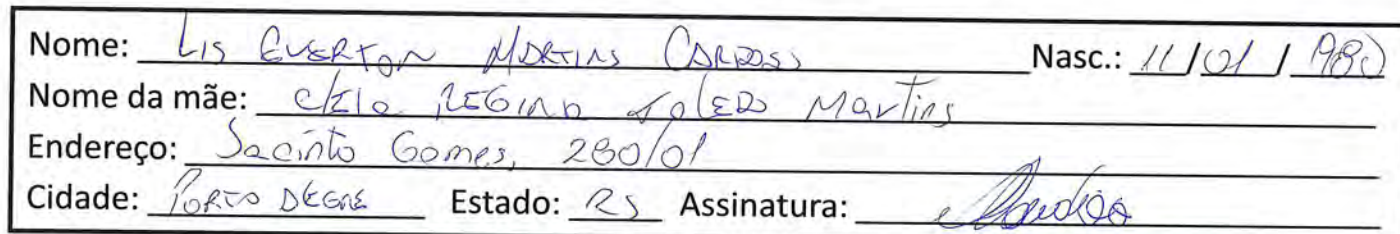 Nome: Lis EVERTON MARTINS CARDOSO Nasc.: 11/01/1980
Nome da mãe: REGINA Martins
Endereço: Jacinto Gomes, 280/01
Cidade: PORTO ALEGRE Estado: RS Assinatura: